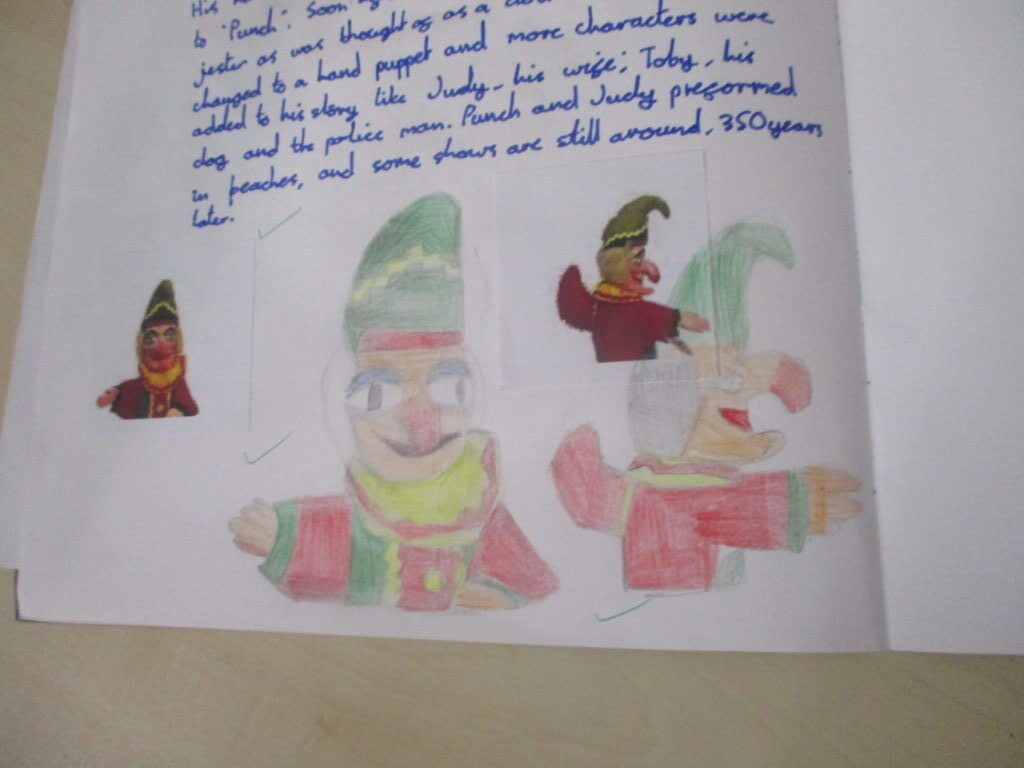 His
to 'Punch'. Soon
jester as was thought of as a
changed to a hand puppet and more characters were
added to his story like Judy, his wife; Toby, his
dog and the police man. Punch and Judy preformed
in beaches, and some shows are still around, 350 years
later.